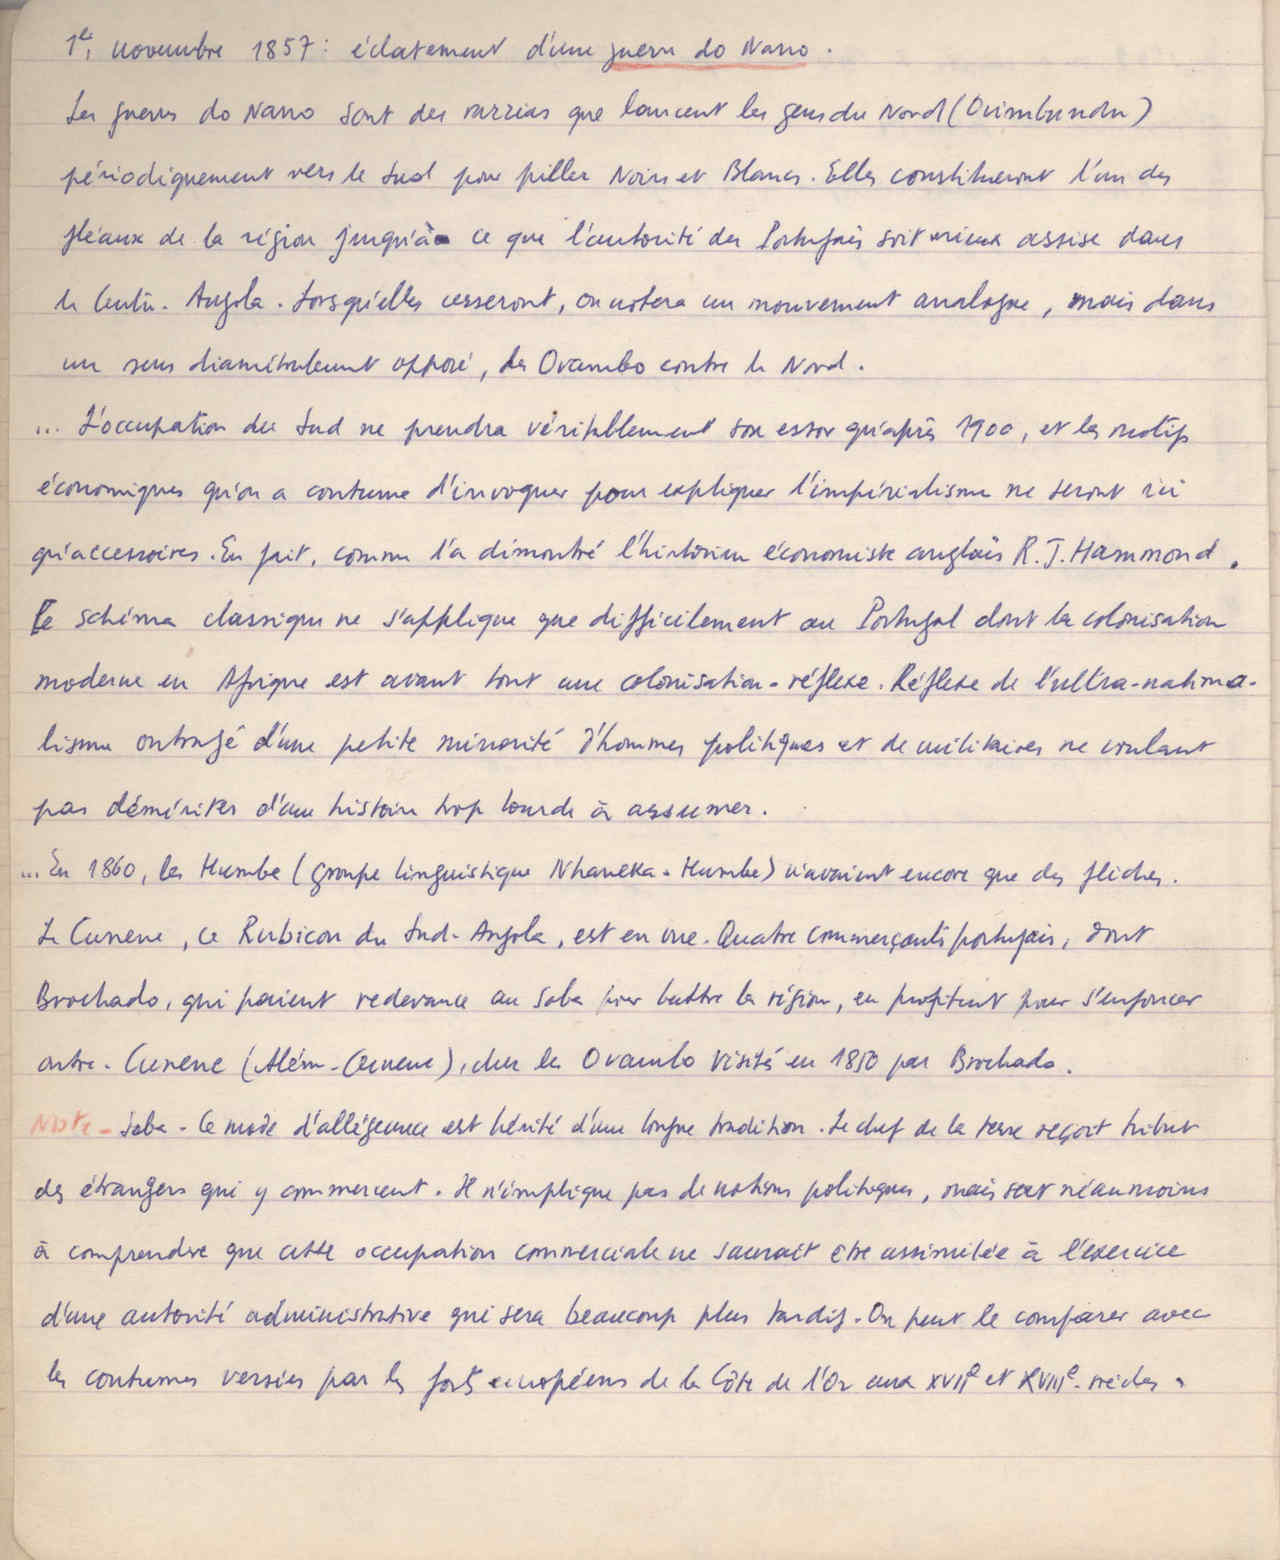 1er novembre 1857 : éclatement d'une guerra do Nano.
Les guerras do Nano sont des razzias que lancent les gens du Nord (Ovimbundu)
périodiquement vers le Sud pour piller Noirs et Blancs. Elles constitueront l'un des
fléaux de la région jusqu'à ce que l'autorité des Portugais soit mieux assise dans
le Centre-Angola. Lorsqu'elles cesseront, on notera un mouvement analogue, mais dans
un sens diamétralement opposé, des Ovambo contre le Nord.
... L'occupation du Sud ne prendra véritablement son essor qu'après 1900, et les motifs
économiques qu'on a coutume d'invoquer pour expliquer l'impérialisme ne seront ici
qu'accessoires. En fait, comme l'a démontré l'historien économiste anglais R.J. Hammond.
le schéma classique ne s'applique que difficilement au Portugal dont la colonisation
moderne en Afrique est avant tout une colonisation-réflexe. Réflexe de l'ultra-nationa-
lisme outragé d'une petite minorité d'hommes politiques et de militaires ne voulant
pas démériter d'une histoire trop lourde à assumer.
... En 1860, les Humbe (groupe linguistique Nhaneka-Humbe) n'avaient encore que des flèches.
Le Cunene, ce Rubicon du Sud-Angola, est en vue. Quatre commerçants portugais, dont
Brochado, qui paient redevance au Soba pour battre la région, en profitent pour s'enfoncer
outre-Cunene (Além-Cunene), chez les Ovambo visités en 1850 par Brochado.
Note - Soba - Ce mode d'allégeance est hérité d'une longue tradition. Le chef de la terre reçoit tribut
des étrangers qui y commercent. Il n'implique pas de notions politiques, mais sert néanmoins
à comprendre que cette occupation commerciale ne saurait être assimilée à l'exercice
d'une autorité administrative qui sera beaucoup plus tardif. On peut le comparer avec
les coutumes versées par les forts européens de la Côte de l'Or aux XVIIe et XVIIIe siècles.